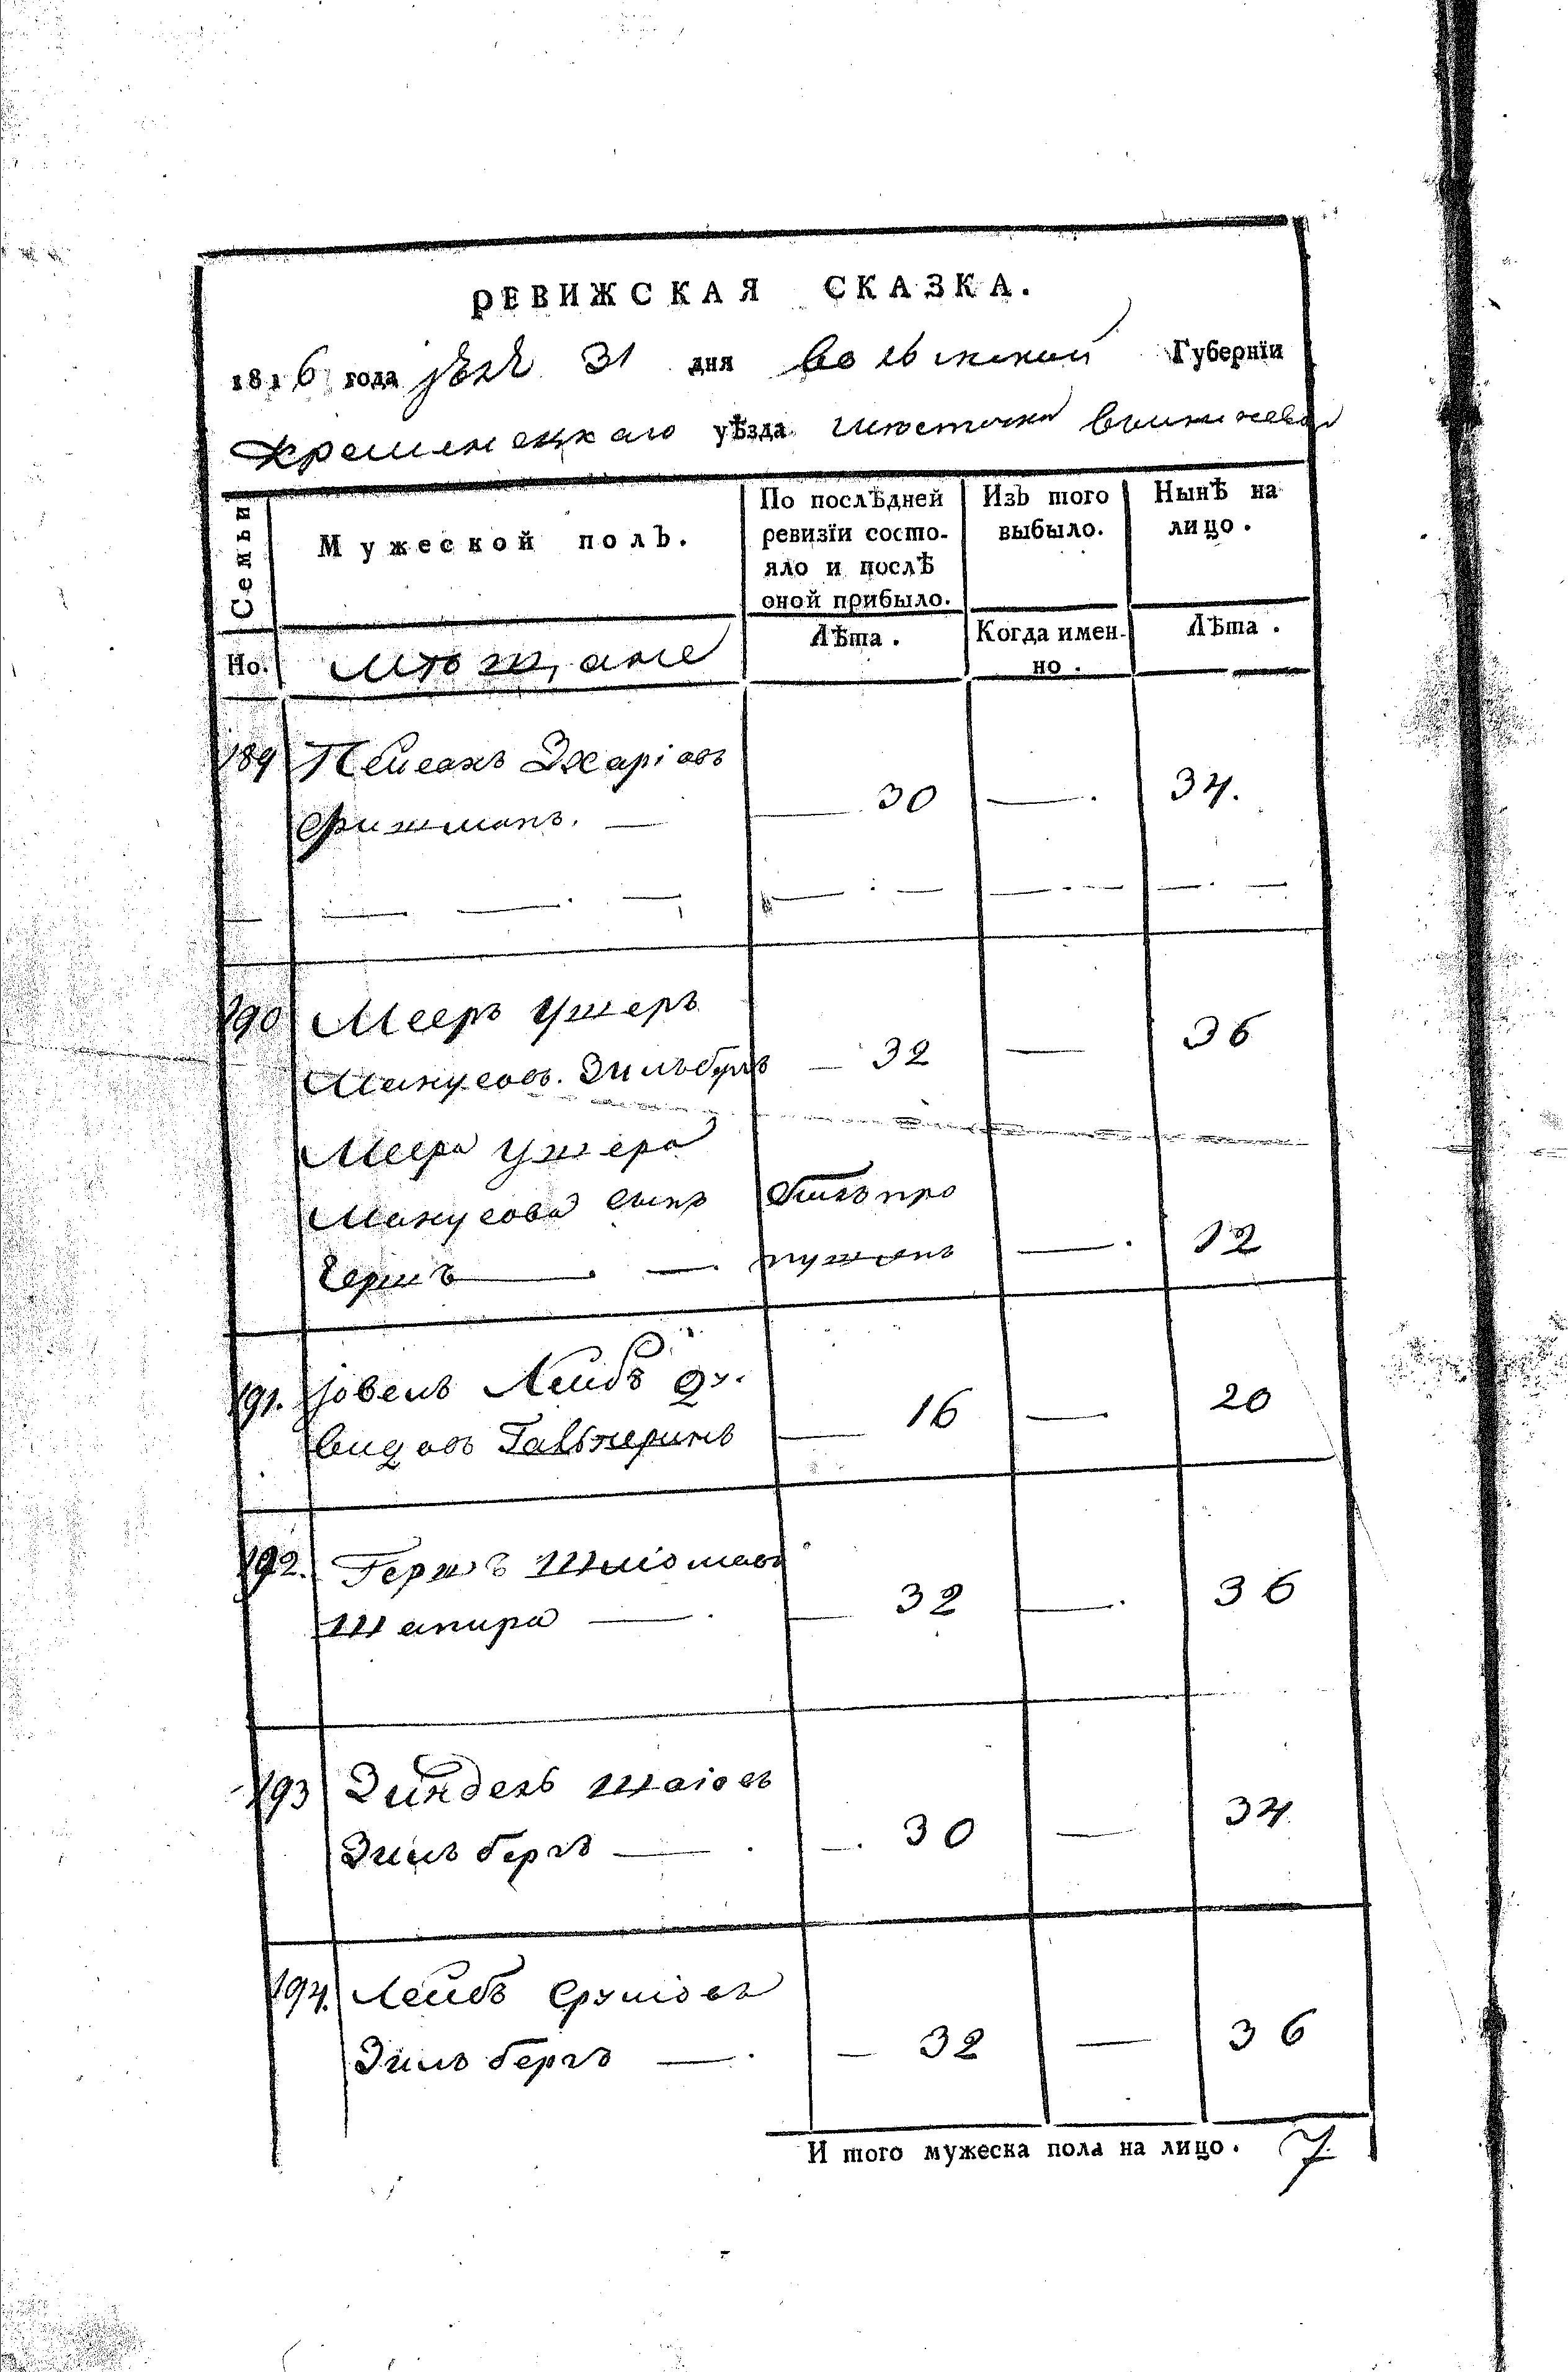 РЕВИЖСКАЯ СКАЗКА.
1816 года 31 дня волынской Губернїи
Кременецкаго уѣзда местечка вишневца
Семьи
Мужеской полъ.
По послѣдней ревизїи состо-
яло и послѣ
оной прибыло.
Изъ того
выбыло.
Нынѣ на
лицо.
Но.
Мѣщане
Лѣта.
Когда имен-
но.
Лѣта.
189 Пейсахъ Зхаріовъ
Фишманъ. — 30 — . 34.
190 Мееръ Ушеръ
Манусовъ. Зильбергъ — 32 — 36
Меера Ушера
Манусова сынъ былъ про
Гершъ — . — . пущенъ — . 12
191. Іовель Лейбъ Ду.
видовъ Гальперинъ — 16 — 20
192. Гершъ Шліомовъ
Шапира — . — 32 — . 36
193 Зиндель
Зильбергъ — . — . 30 — 34
194. Лейбъ
Зильбергъ — . — 32 — 36
И того мужеска пола на лицо. 7.